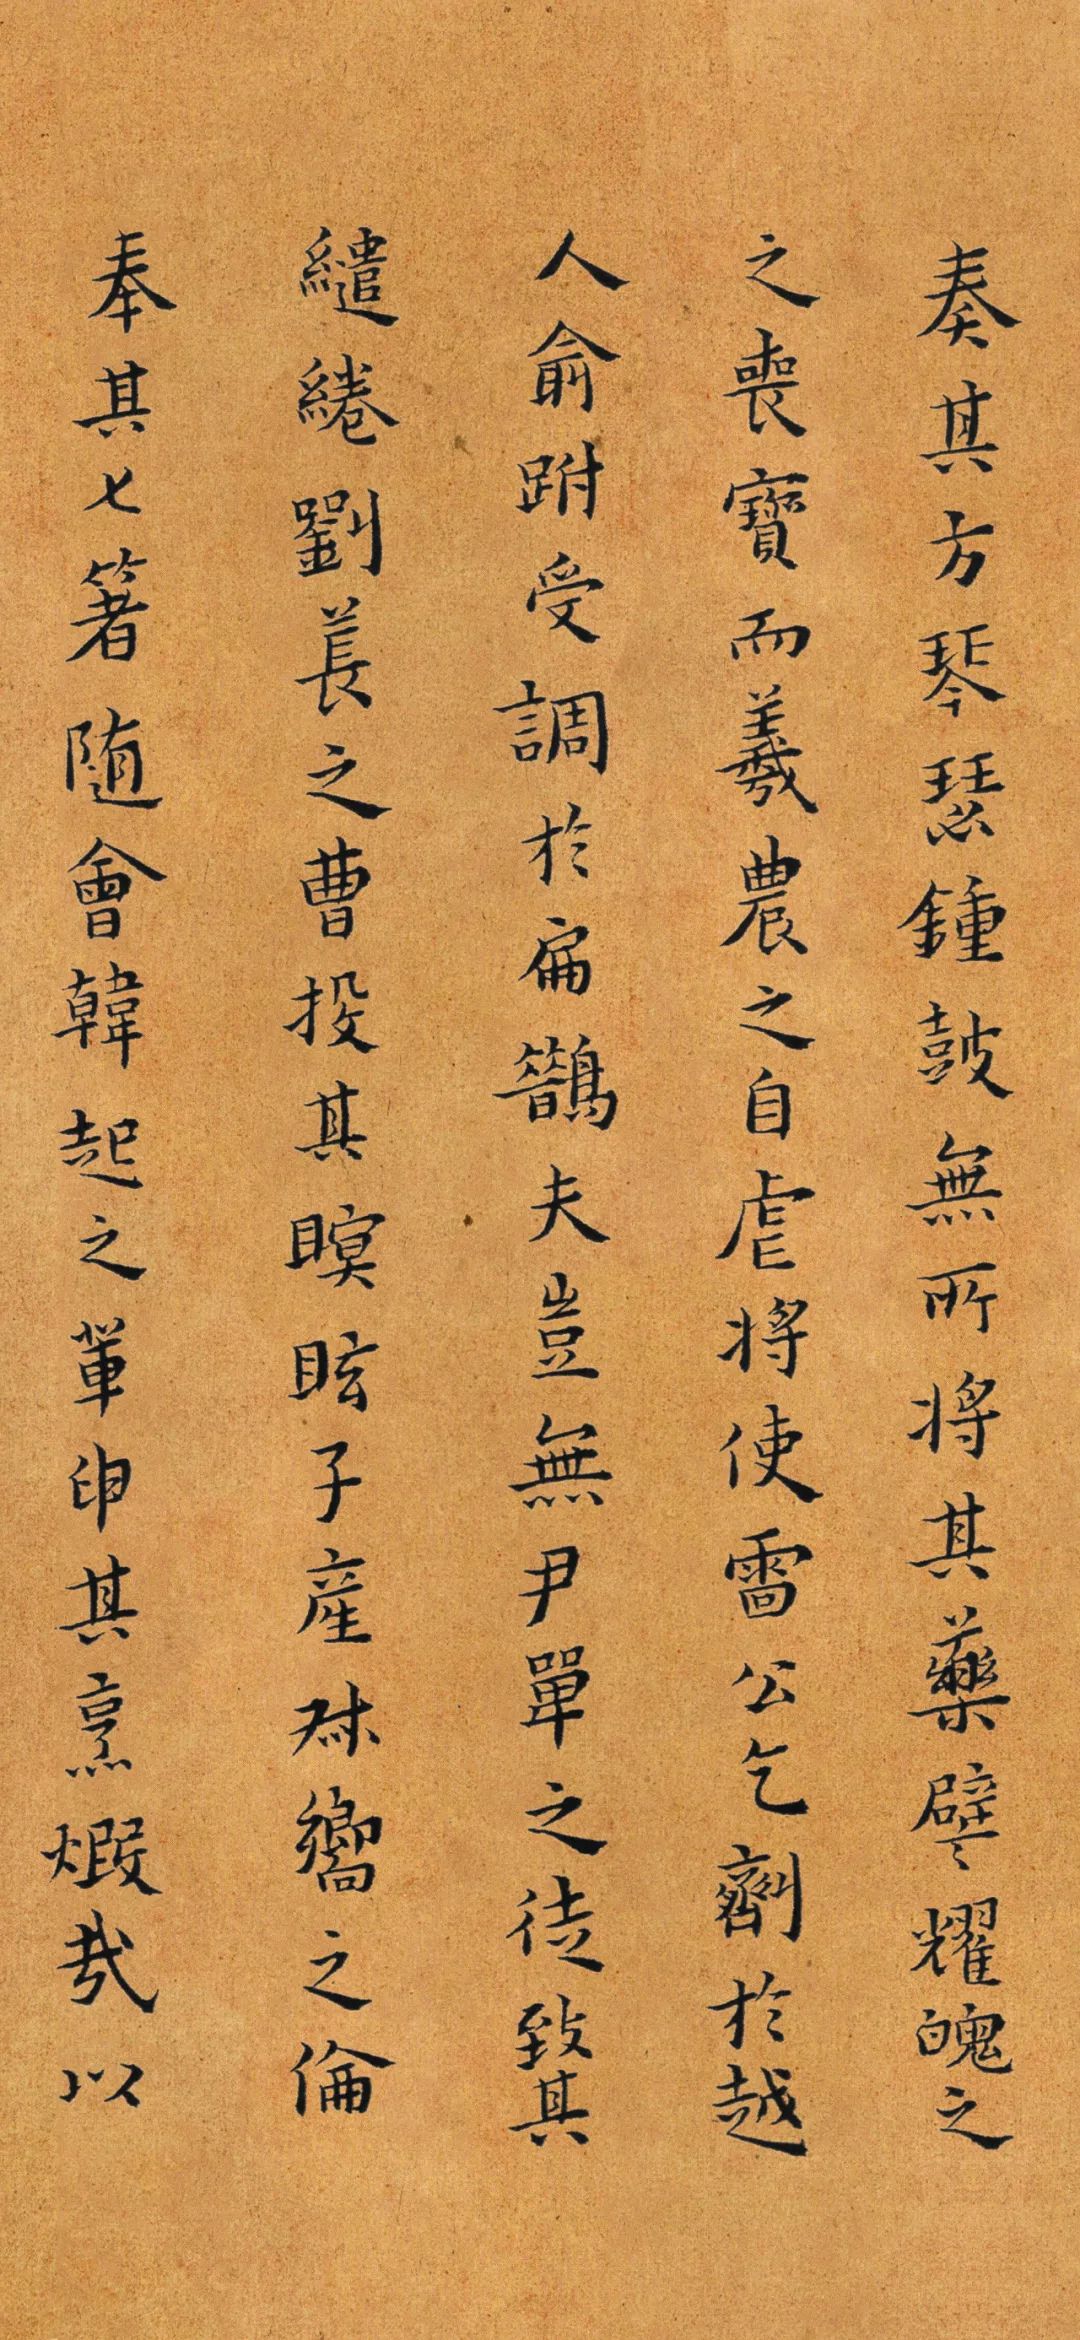 奏其方琴瑟鍾鼓無所將其藥譬耀魄之
之喪寶而羲農之自虐將使雷公乞劑於越
人俞跗受調於扁鵲夫豈無尹單之徒致其
繾綣劉萇之曹投其瞑眩子產叔嚮之倫
奉其匕箸隨會韓起之輩申其烹煆哉以